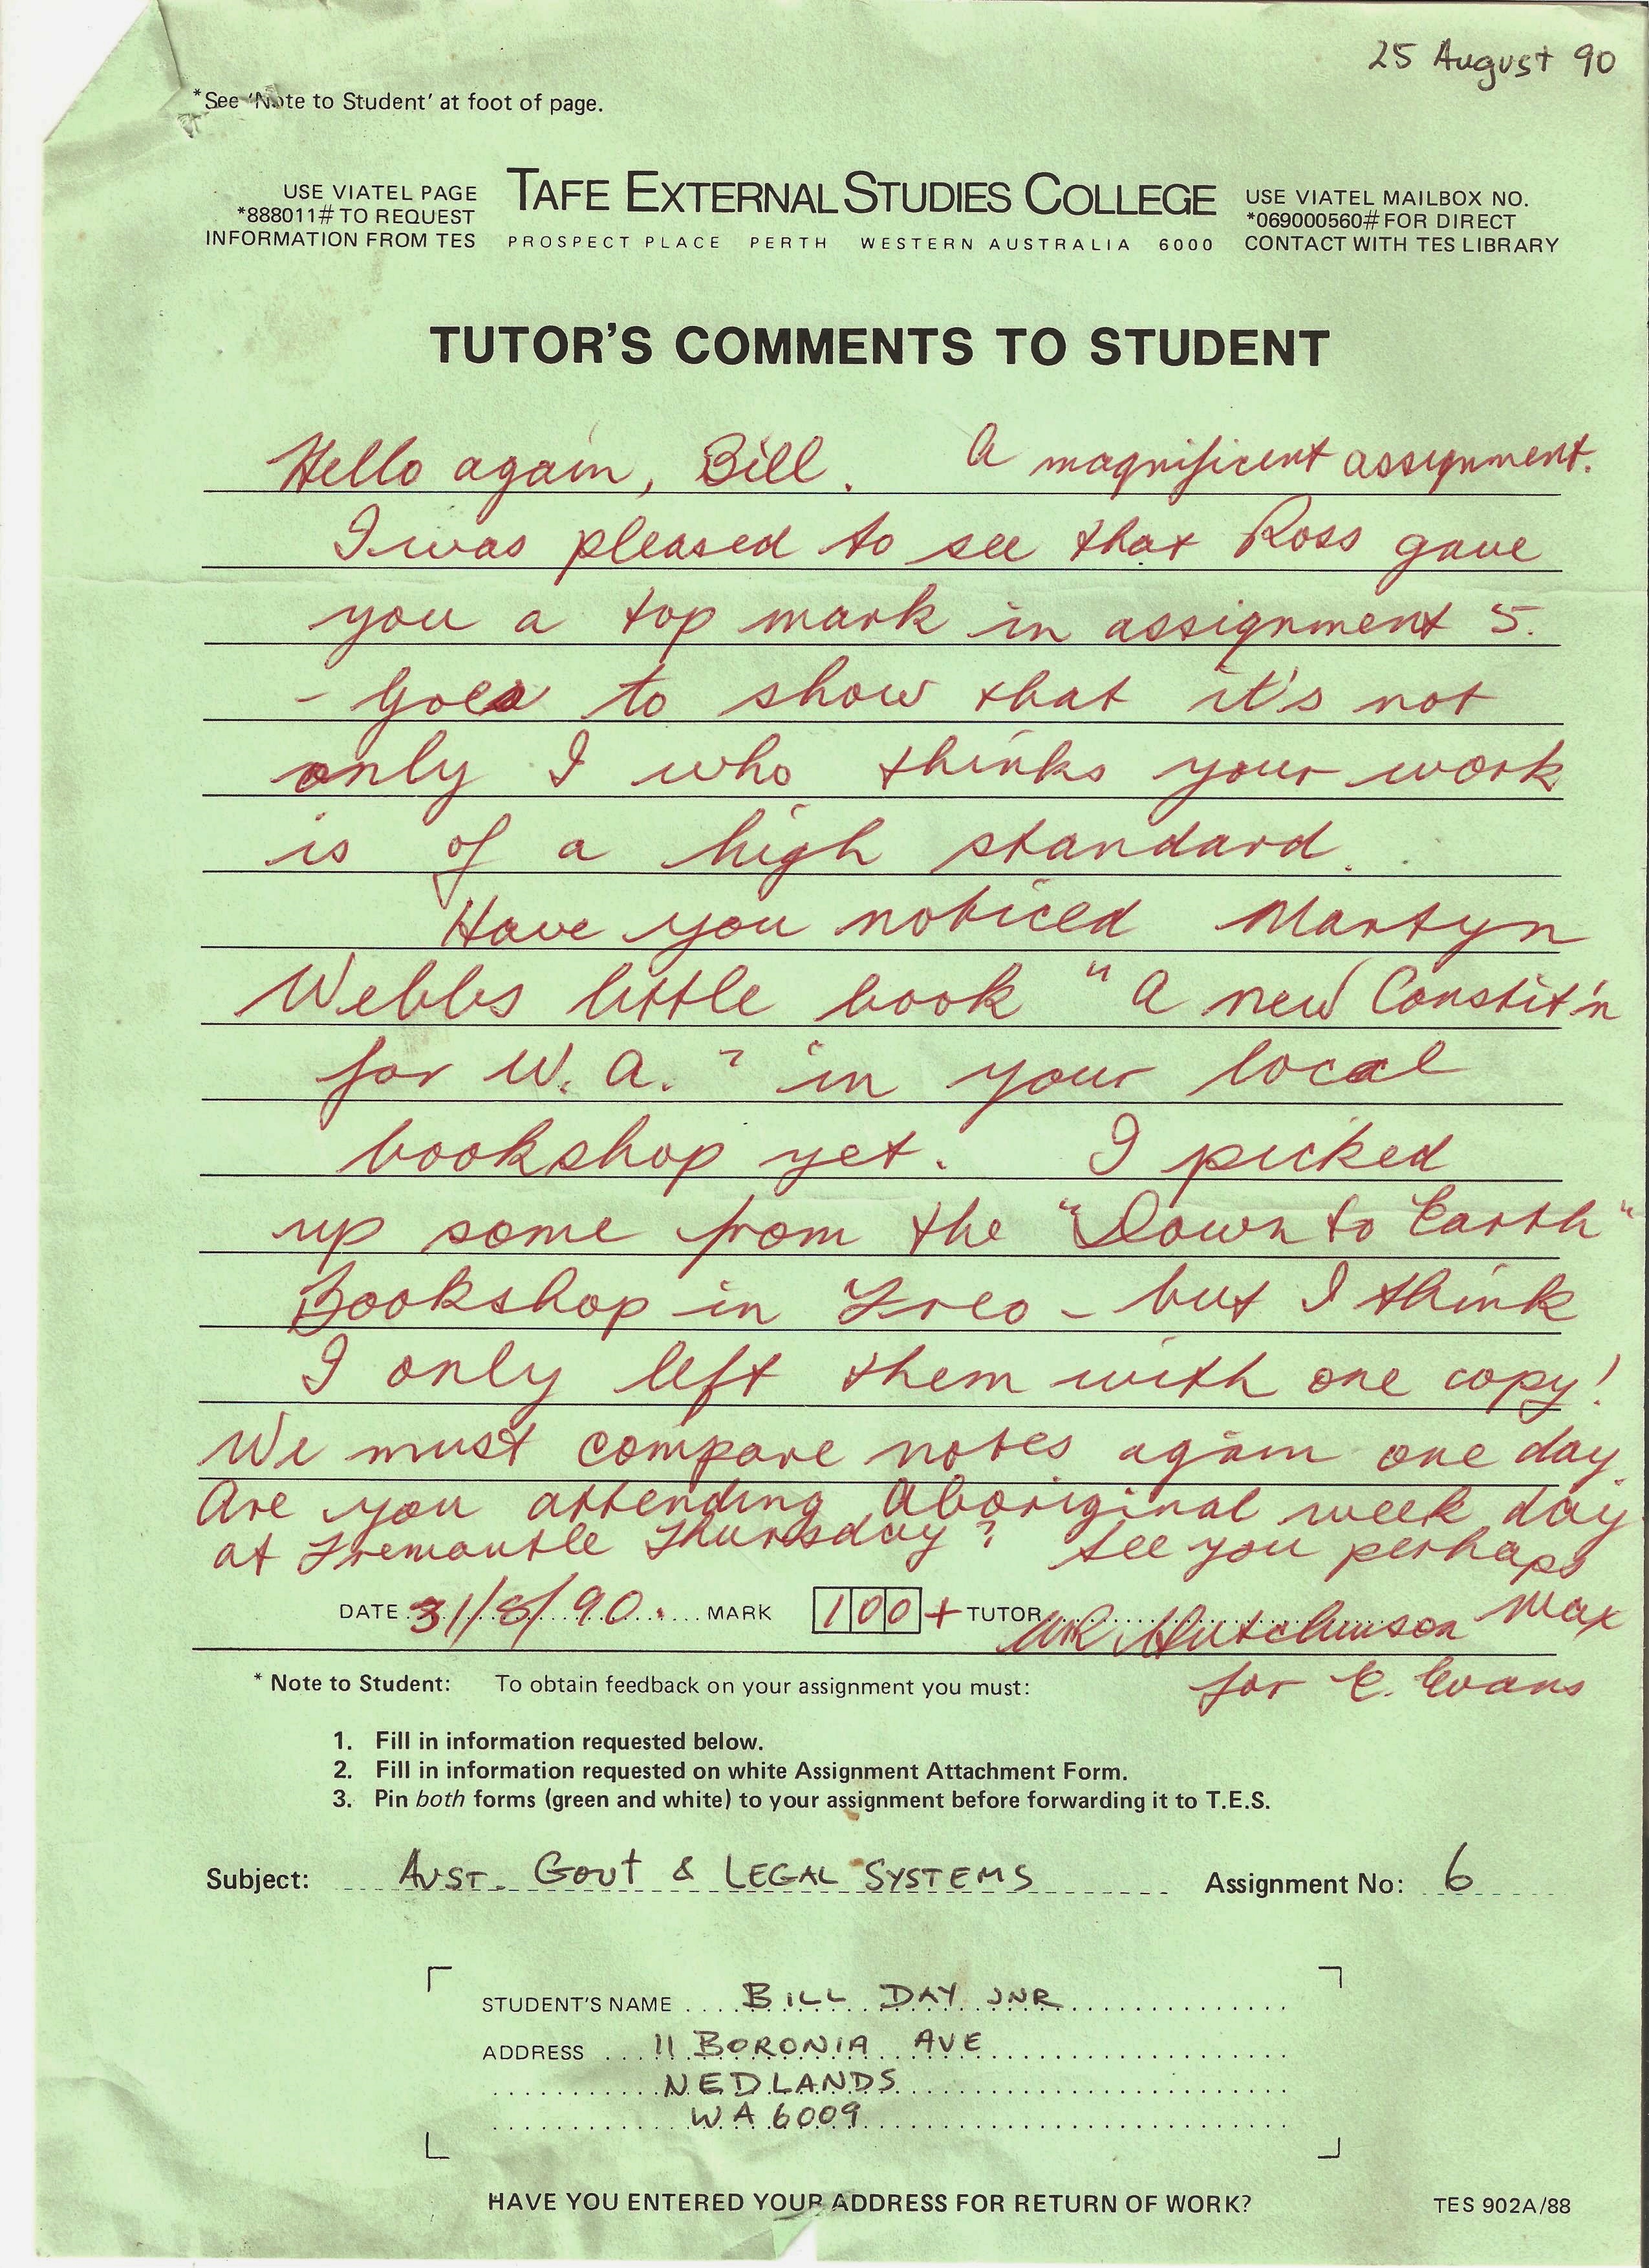 25 August 90
*See 'Note to Student' at foot of page.
USE VIATEL PAGE
*888011# TO REQUEST
INFORMATION FROM TES
TAFE EXTERNAL STUDIES COLLEGE
PROSPECT PLACE PERTH WESTERN AUSTRALIA 6000
USE VIATEL MAILBOX NO.
*069000560# FOR DIRECT
CONTACT WITH TES LIBRARY
TUTOR'S COMMENTS TO STUDENT
Hello again, Bill. A magnificent assignment.
I was pleased to see that Ross gave
you a top mark in assignment 5.
- Goes to show that it's not
only I who thinks your work
is of a high standard.
Have you noticed Martyn
Webbs little book "A new Constit'n
for W.A."? in your local
bookshop yet. I picked
up some from the "Down to Earth"
Bookshop in Freo - but I think
I only left them with one copy!
We must compare notes again one day.
Are you attending Aboriginal week day
at Fremantle Thursday? See you perhaps
Max
DATE 31/8/90. MARK 100+ TUTOR WR Hutchinson
for E. Evans
* Note to Student: To obtain feedback on your assignment you must:
1. Fill in information requested below.
2. Fill in information requested on white Assignment Attachment Form.
3. Pin both forms (green and white) to your assignment before forwarding it to T.E.S.
Subject: AUST. GOVT & LEGAL SYSTEMS Assignment No: 6
STUDENT'S NAME BILL DAY JNR
ADDRESS 11 BORONIA AVE
NEDLANDS
WA 6009
HAVE YOU ENTERED YOUR ADDRESS FOR RETURN OF WORK?
TES 902A/88